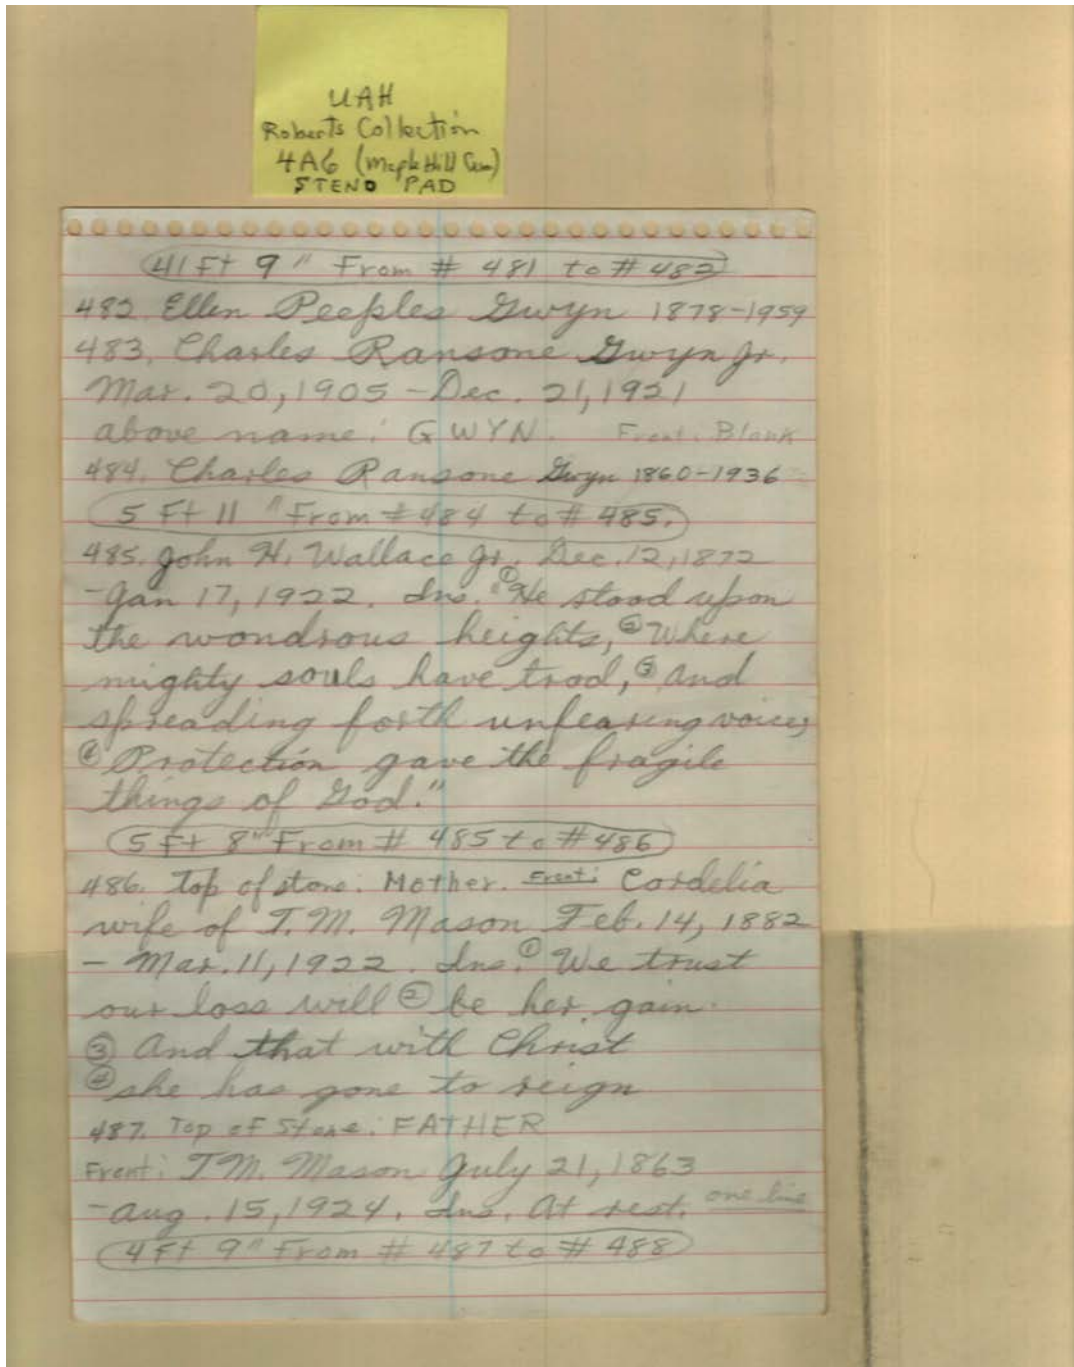 UAH
Roberts Collection
4A6 (Maple Hill Cem)
STENO PAD
41 Ft 9" From # 481 to # 482
482. Ellen Peeples Gwyn 1878-1959
483. Charles Ransone Gwyn Jr.
Mar. 20, 1905 - Dec. 21, 1921
above name: GWYN. Front: Blank
484. Charles Ransone Gwyn 1860-1936
5 Ft 11" From # 484 to # 485.
485. John H. Wallace Jr. Dec. 12, 1872
- Jan 17, 1922. Ins. ① "He stood upon
the wondrous heights, ② Where
mighty souls have trod, ③ And
spreading forth unfearing voice,
④ Protection gave the fragile
things of God."
5 Ft 8" From # 485 to # 486
486. Top of stone: Mother. Front: Cordelia
wife of T.M. Mason Feb. 14, 1882
- Mar. 11, 1922. Ins. ① We trust
our loss will ② be her gain.
③ And that with Christ
④ she has gone to reign
487. Top of Stone: FATHER
Front: T.M. Mason July 21, 1863
- Aug. 15, 1924. Ins. At rest. one line
4 Ft 9" From # 487 to # 488